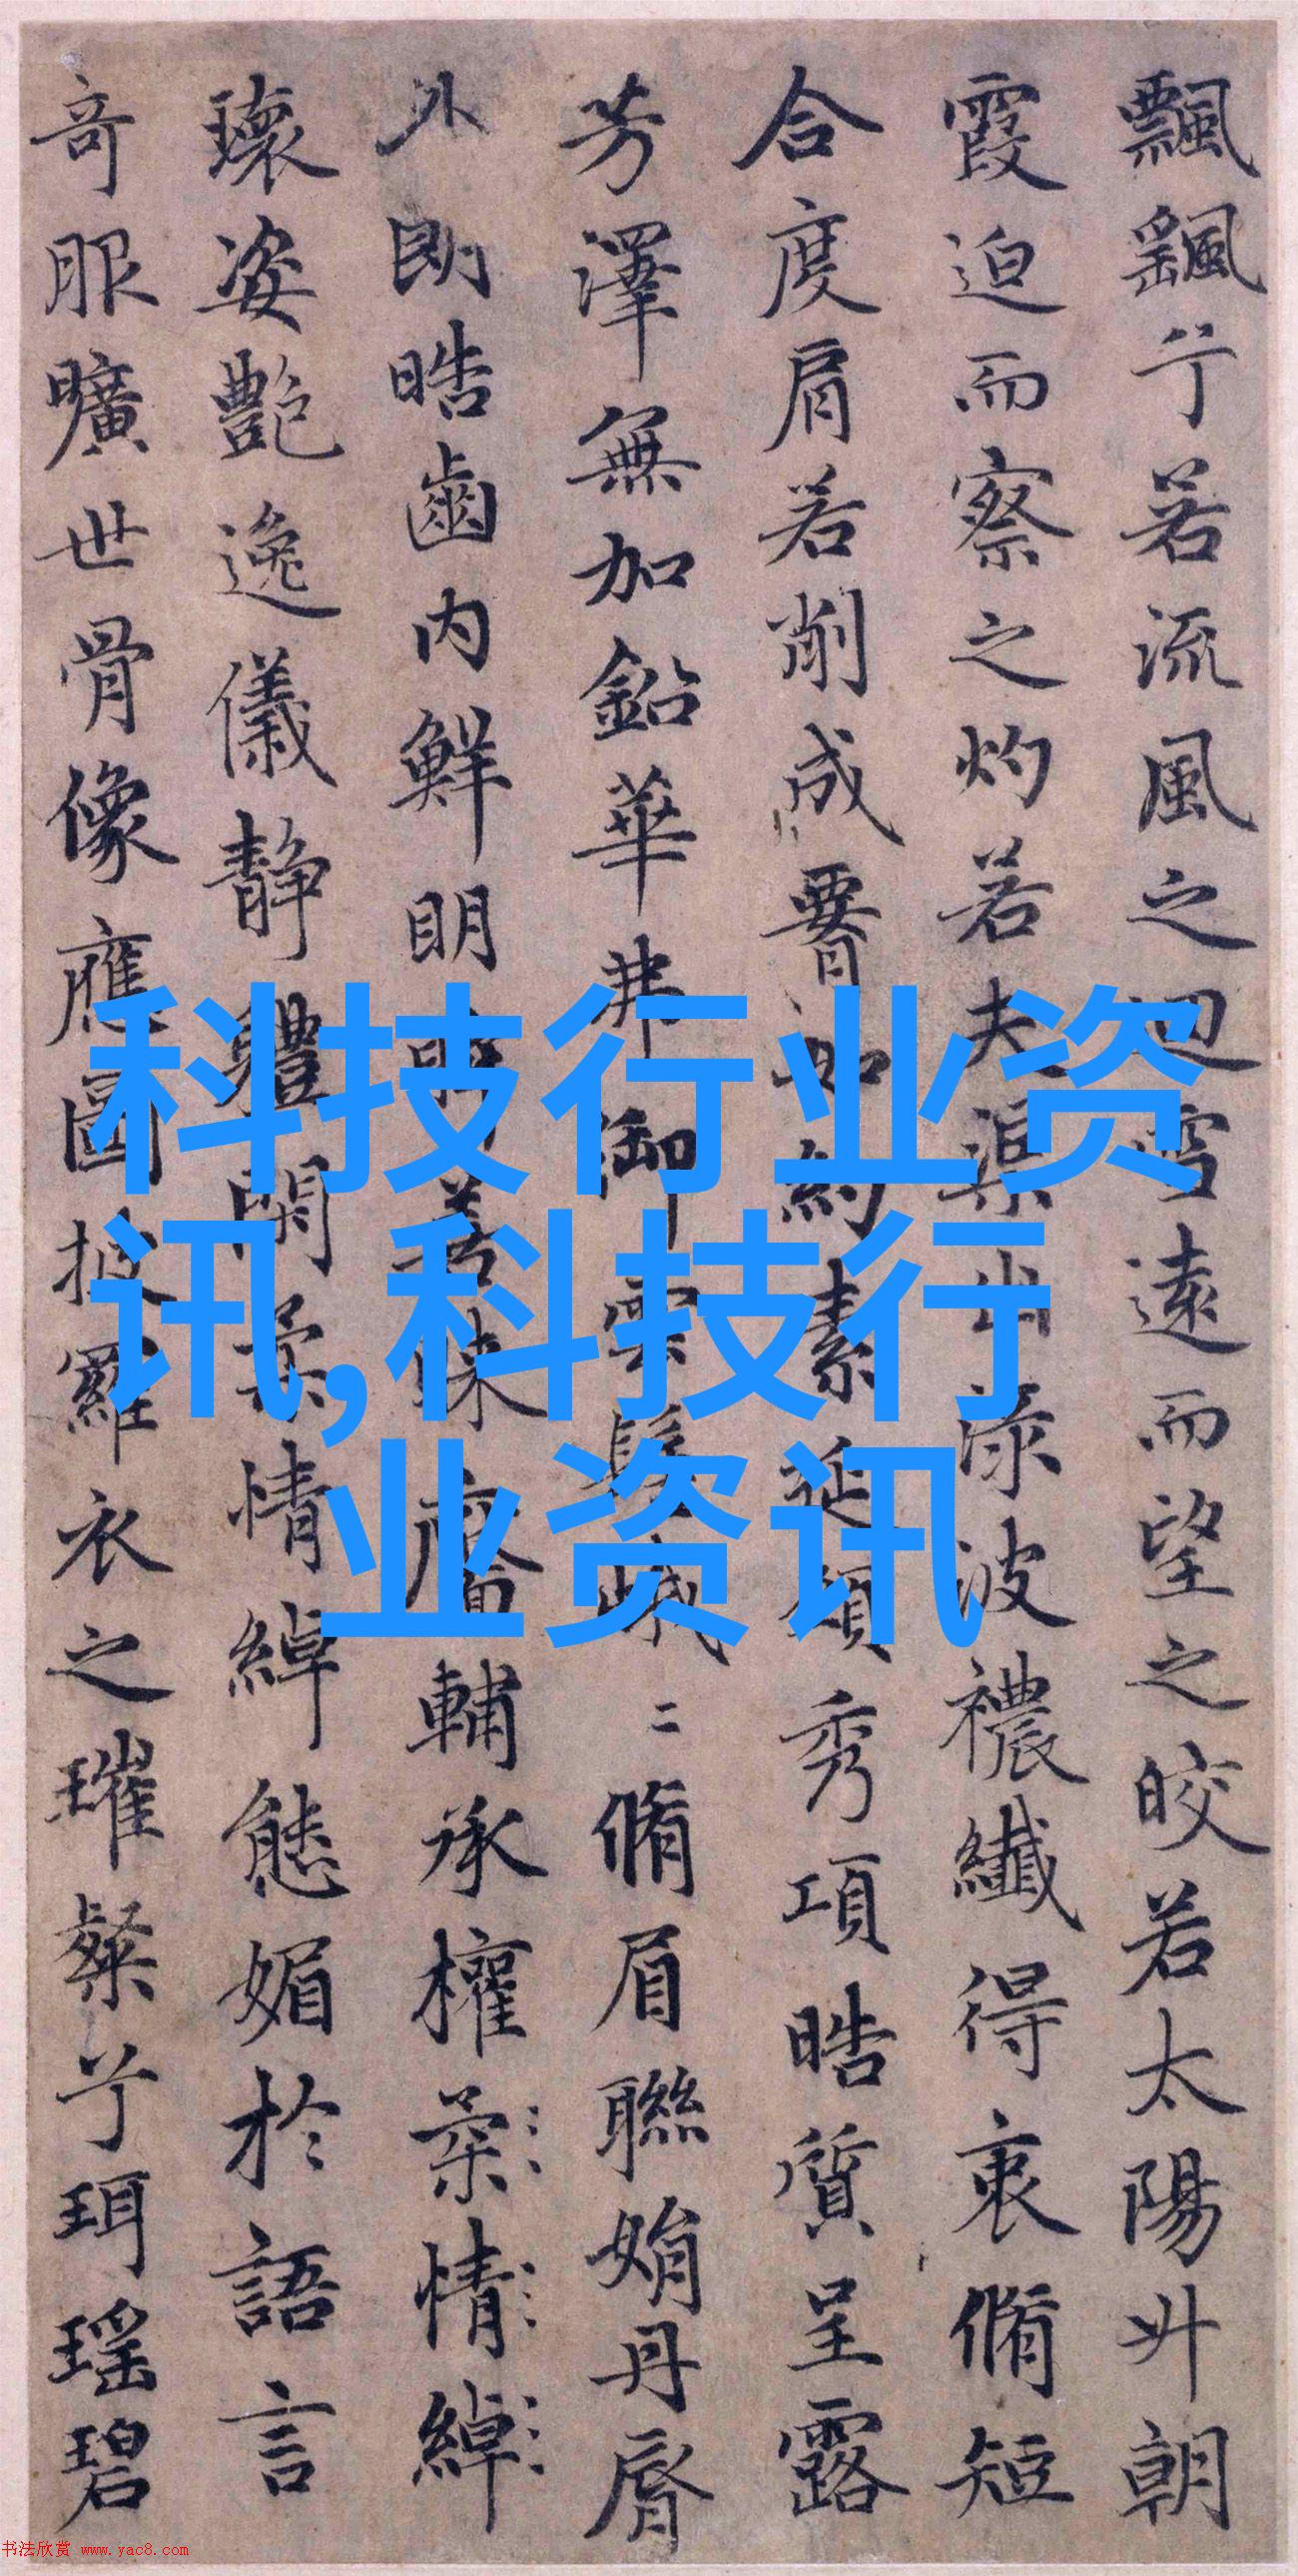 飄颻兮若流風之迴雪遠而望之皎若太陽升朝
霞迫而察之灼若夫渠出淥波襛纖得衷脩短
合度肩若削成如約素延頸秀項晧質呈露
芳澤無加鉛華弗御雲髻峨二脩眉聯娟丹脣
外朗晧齒內鮮明眸善睞靨輔承權柔情綽
瓌姿艷逸儀靜體閑柔情綽態媚於語言
奇服曠世骨像應圖披羅衣之璀粲兮珥瑤碧
科技行业资
讯,科技行
业资讯
书法欣赏 www.yac8.com